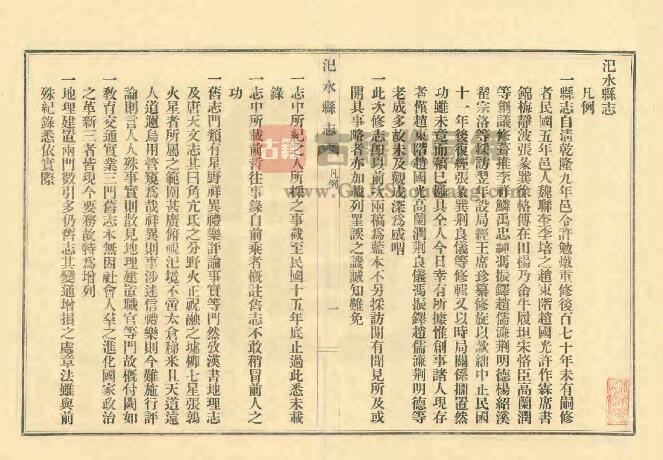 汜水縣志
凡例
一縣志自清乾隆九年邑令許勉燉重修後百七十年未有嗣修
者民國五年邑人魏聯奎李培之趙東階趙國光許作霖席書
錦梅靜波張象巽徐恪傅在田楊乃裔牛履坦朱恪臣高蘭澗
等創議修纂推李祥麟禹忠純馮振鐸趙儒濂荆明德楊紹溪
翟宗洛等採訪翌年設局經王席珍纂修旋以款絀中止民國
十一年後復經張象巽荆良儀等修輯又以時局關係擱置然
功雖未竟而稿已備具全人今日幸有所據惟創事諸人現存
者僅趙東階趙國光高蘭澗荆良儀馮振鐸趙儒濂荆明德等
老成多故未及觀成深爲感喟
一此次修志即以前次兩稿爲藍本不另採訪間有聞見所及或
開具事略者亦加識列罣誤之譏誠知難免
一志中所紀之人所採之事截至民國十五年底止過此悉未載
錄
一志中所載前哲往事錄自前乘者槪註舊志不敢稍冒前人之
功
一舊志門類有星野祥異禮樂評論事實等門然攷漢書地理志
及唐天文志其曰角亢氏之分野火正祝融之墟柳七星張鶉
火星者所屬之範圍甚廣俯視汜境不啻太倉稊米且天道遠
人道邇烏用管窺爲哉祥異則事涉迷信禮樂則今難施行評
論則言人人殊事實則散見地理建置職官等門故槪付闕如
一敎育交通實業三門舊志本無因社會人羣之進化國家政治
之革新三者皆現今要務故特爲增列
一地理建置兩門徵引多仍舊志其變通增損之處章法雖與前
殊紀錄悉依實際
汜水縣志
凡例
一